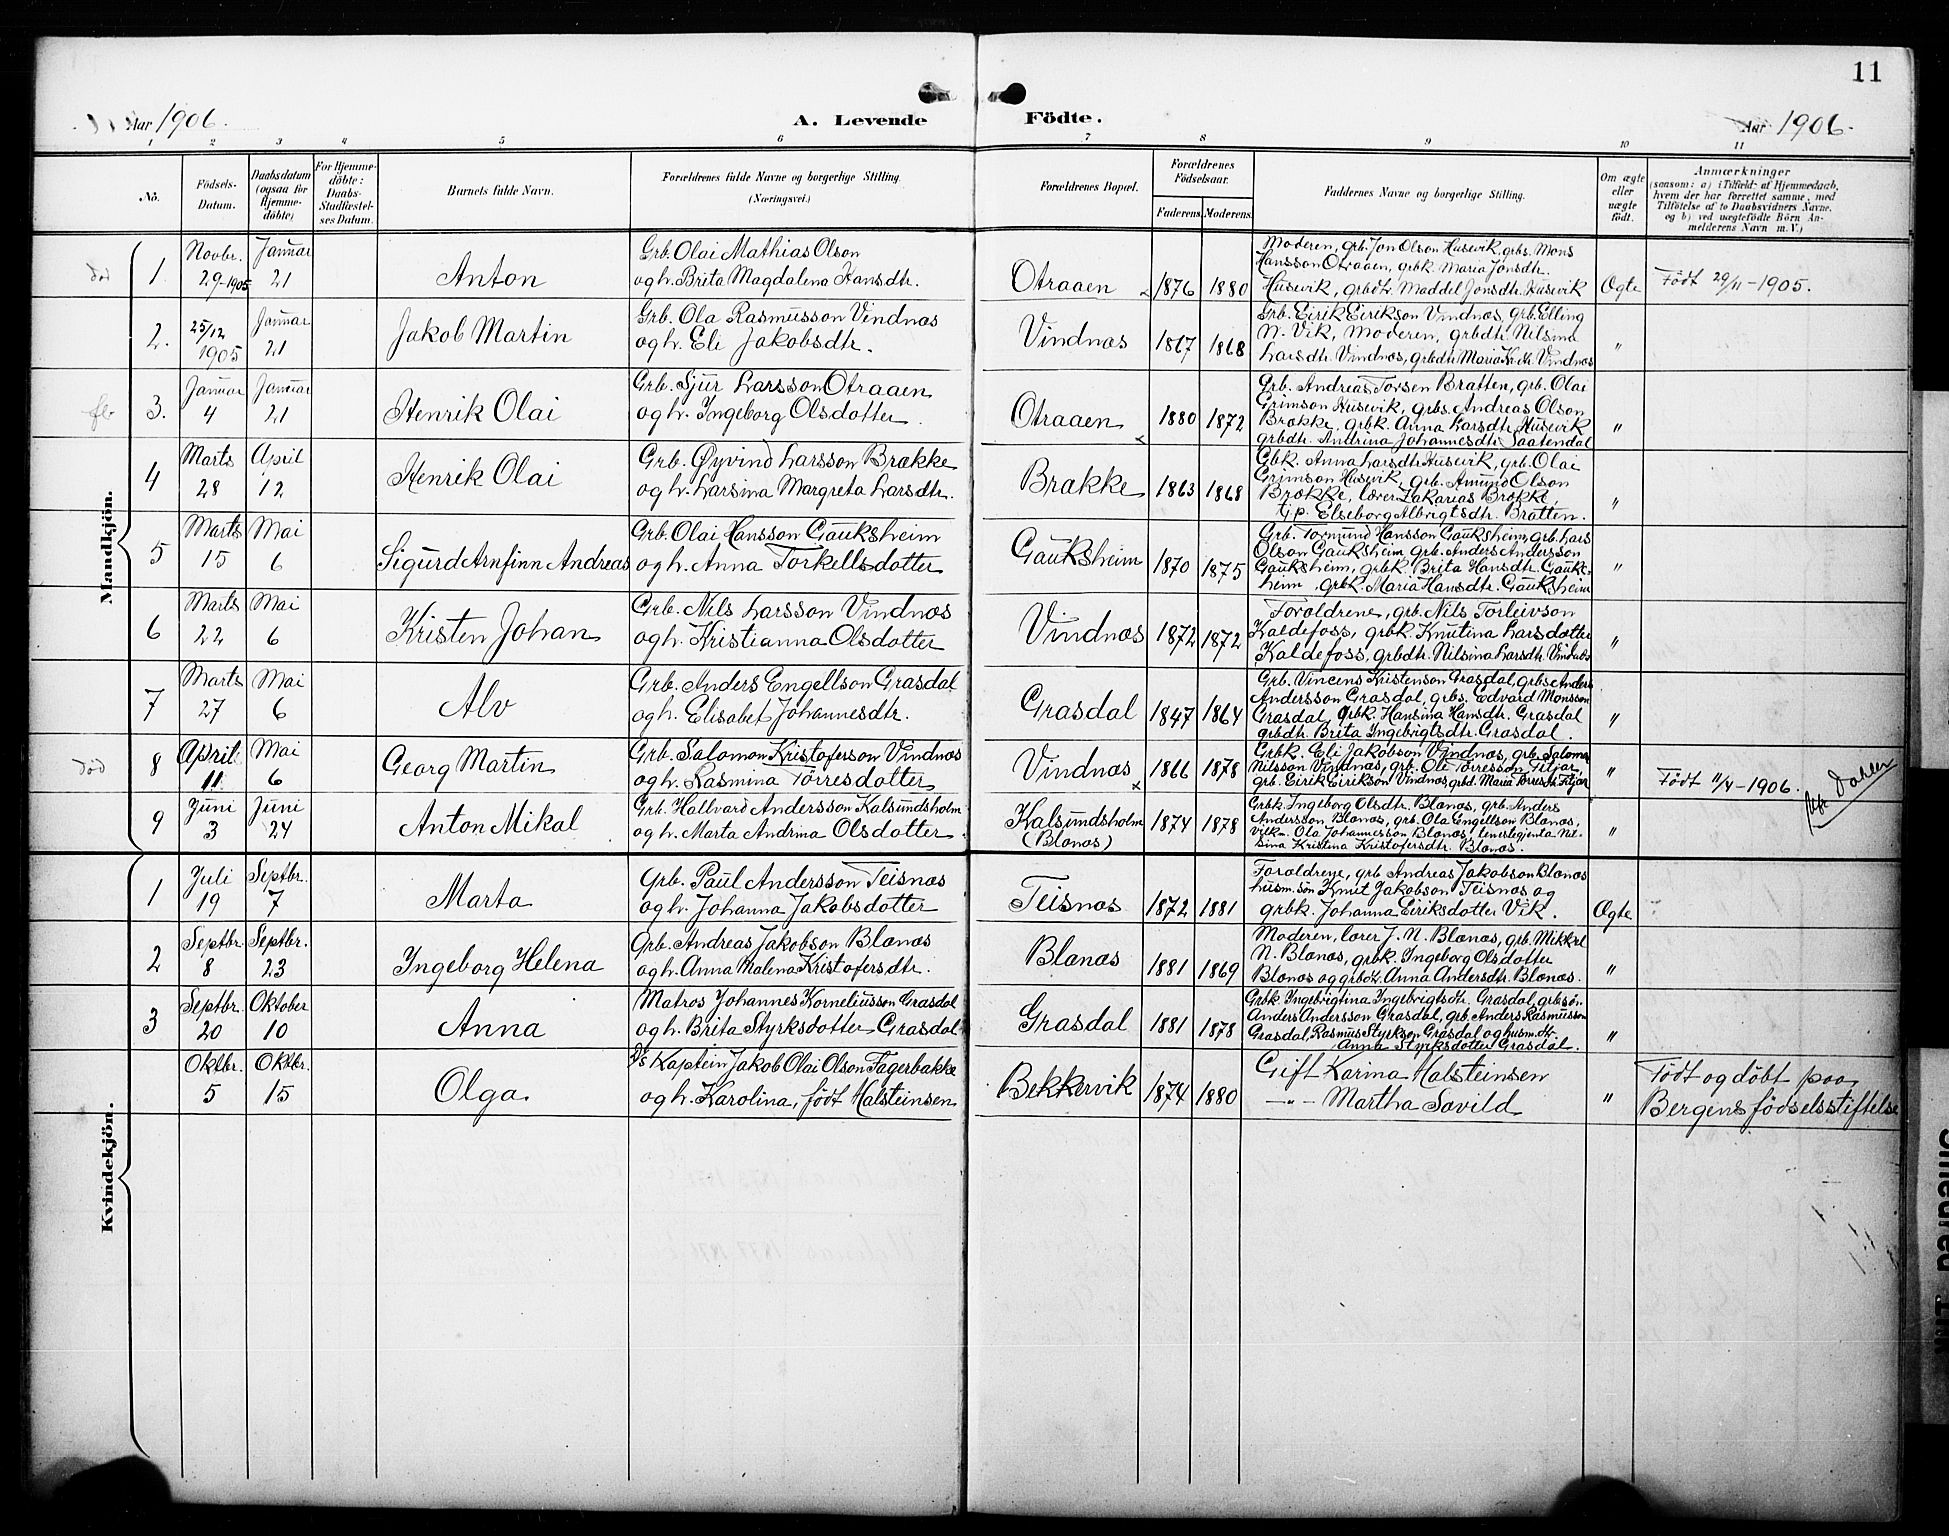 11
Aar 1906.
A. Levende Födte.
Aar 1906.
1 2 3 4 5 6 7 8 9 10 11
No.
Födsels-
Datum.
Daabsdatum
(ogsaa for
Hjemme-
döbte)
For Hjemme-
döbte:
Daabs-
Stadfæstel-
ses Datum.
Barnets fulde Navn.
Forældrenes fulde Navne og borgerlige Stilling.
(Næringsvei.)
Forældrenes Bopæl.
Forældrenes
Födselsaar.
Faderens. Moderens.
Faddernes Navne og borgerlige Stilling.
Om ægte
eller
uægte
födt.
Anmærkninger
(saasom: a) i Tilfælde af Hjemmedaab,
hvem der har forrettet samme, med
Tilföielse af to Daabsvidners Navne,
og b) ved uægtefödte Börn An-
melderens Navn m. V.)
Mandkjön.
død
1
Novbr.
29-1905
Januar
21
Anton
Grb. Olai Mathias Olson
og h. Brita Magdalena Hansdtr.
Otraaen
1876
1880
Moderen, grb. Jon Olson Husevik, grbs. Mons
Hansson Otraaen, grbk. Maria Jonsdtr.
Husevik, grbdtr. Maddel Jonsdtr. Husevik
Ægte
Født 29/11-1905.
2.
25/12
1905
Januar
21
Jakob Martin
Grb. Ola Rasmusson Vindnæs
og h. Eli Jakobsdtr.
Vindnæs
1867
1868
Grb. Eirik Eirikson Vindnæs, grb. Elling
N. Vik, Moderen, grbdtr. Nilsina
Larsdtr. Vindnæs, grbdtr. Maria Vindnæs
"
3.
Januar
4
Januar
21
Henrik Olai
Grb. Sjur Larsson Otraaen
og h. Ingeborg Olsdotter.
Otraaen
1880
1872
Grb. Andreas Torsen Bratten, grb. Olai
Grimson Husevik, grbs. Andreas Olson
Brække, grbk. Anna Larsdtr. Husevik
grbdtr. Andrina Johannesdtr. Saatendal
"
4
Marts
28
April
12
Henrik Olai
Grb. Øyvind Larsson Brække
og h. Larsina Margreta Larsdtr.
Brække
1863
1868
Gbk. Anna Larsdtr. Husevik, grb. Olai
Grimson Husevik, grb. Amund Olson
Brække, lærer Zakarias Brække,
tjp. Elseborg Albrigtsdtr. Bratten.
"
5
Marts
15
Mai
6
Sigurd Arnfinn Andreas
Grb. Olai Hansson Gauksheim
og h. Anna Torkellsdotter
Gauksheim
1870
1875
Grb. Tormund Hansson Gauksheim, grb. Lars
Olson Gauksheim, grb. Anders Andersson
Gauksheim, grbk. Brita Hansdtr. Gauks-
heim, grbk. Maria Hansdtr. Gauksheim
"
6
Marts
22
Mai
6
Kristen Johan
Grb. Nils Larsson Vindnæs
og h. Kristianna Olsdotter
Vindnæs
1872
1872
Forældrene, grb. Nils Torleivson
Kaldefoss, grbk. Knutina Larsdotter
Kaldefoss, grbdtr. Nilsina Larsdtr. Vindnæs
"
7
Marts
27
Mai
6
Alv
Grb. Anders Engellson Grasdal
og h. Elisabet Johannesdtr.
Grasdal
1847
1864
Grb. Vincens Kristenson Grasdal, grbs. Anders
Andersson Grasdal, grbs. Edvard Monsson
Grasdal, grbk. Hansina Hansdtr. Grasdal
grbdtr. Brita Ingebrigtsdtr. Grasdal.
"
død
8
April
11
Mai
6
Georg Martin
Grb. Salomon Kristoferson Vindnæs
og h. Rasmina Torresdotter
Vindnæs
1866
1878
Grbk. Eli Jakobson Vindnæs, grb. Salomon
Nilsson Vindnæs, grb. Ole Torresson Fitjar,
grb. Eirik Eirikson Vindnæs, grbd. Maria Torresdtr. Fitjar
"
Født 11/4-1906.
9
Juni
3
Juni
24
Anton Mikal
Grb. Hallvard Andersson Kalsundsholm
og h. Marta Andrina Olsdotter.
Kalsundsholm
(Blænæs)
1874
1878
Grbk. Ingeborg Olsdtr. Blænæs, grb. Anders
Andersson Blænæs, grb. Ola Engellson Blænæs,
Ola Johannesson Blænæs, tenestegjenta Nil-
sina Kristina Kristofersdtr. Blænæs.
"
Kvindekjön.
1
Juli
19
Septbr.
7
Marta
Grb. Paul Andersson Teisnæs
og h. Johanna Jakobsdotter
Teisnæs
1872
1881
Forældrene, grb Andreas Jakobson Blænæs
husm. søn Knut Jakobson Teisnæs og
grbk. Johanna Eiriksdotter Vik.
Ægte
2
Septbr.
8
Septbr.
23
Ingeborg Helena
Grb. Andreas Jakobson Blænæs
og h. Anna Malena Kristofersdtr.
Blænæs
1881
1869
Moderen, lærer J. N. Blænæs, grb. Mikkel
N. Blænæs, grbk. Ingeborg Olsdotter
Blænæs og grbdtr. Anna Andersdtr. Blænæs.
"
3
Septbr.
20
Oktober
10
Anna
Matros Johannes Korneliusson Grasdal
og h. Brita Styrksdotter Grasdal
Grasdal
1881
1878
Grbk. Ingebrigtina Ingebrigtsdtr. Grasdal, grbsøn
Anders Andersson Grasdal, grb. Anders Rasmusson
Grasdal, Rasmus Styrkson Grasdal og husm. dtr.
Anna Styrksdotter Grasdal.
"
Oktbr.
5
Oktbr.
15
Olga
D/s Kaptein Jakob Olai Olson Fagerbakke
og h. Karolina, født Halsteinsen
Bekkervik
1874
1880
Gift Karina Halsteinsen
-"- Martha Søvild
"
Født og døbt paa
Bergens fødselsstiftelse